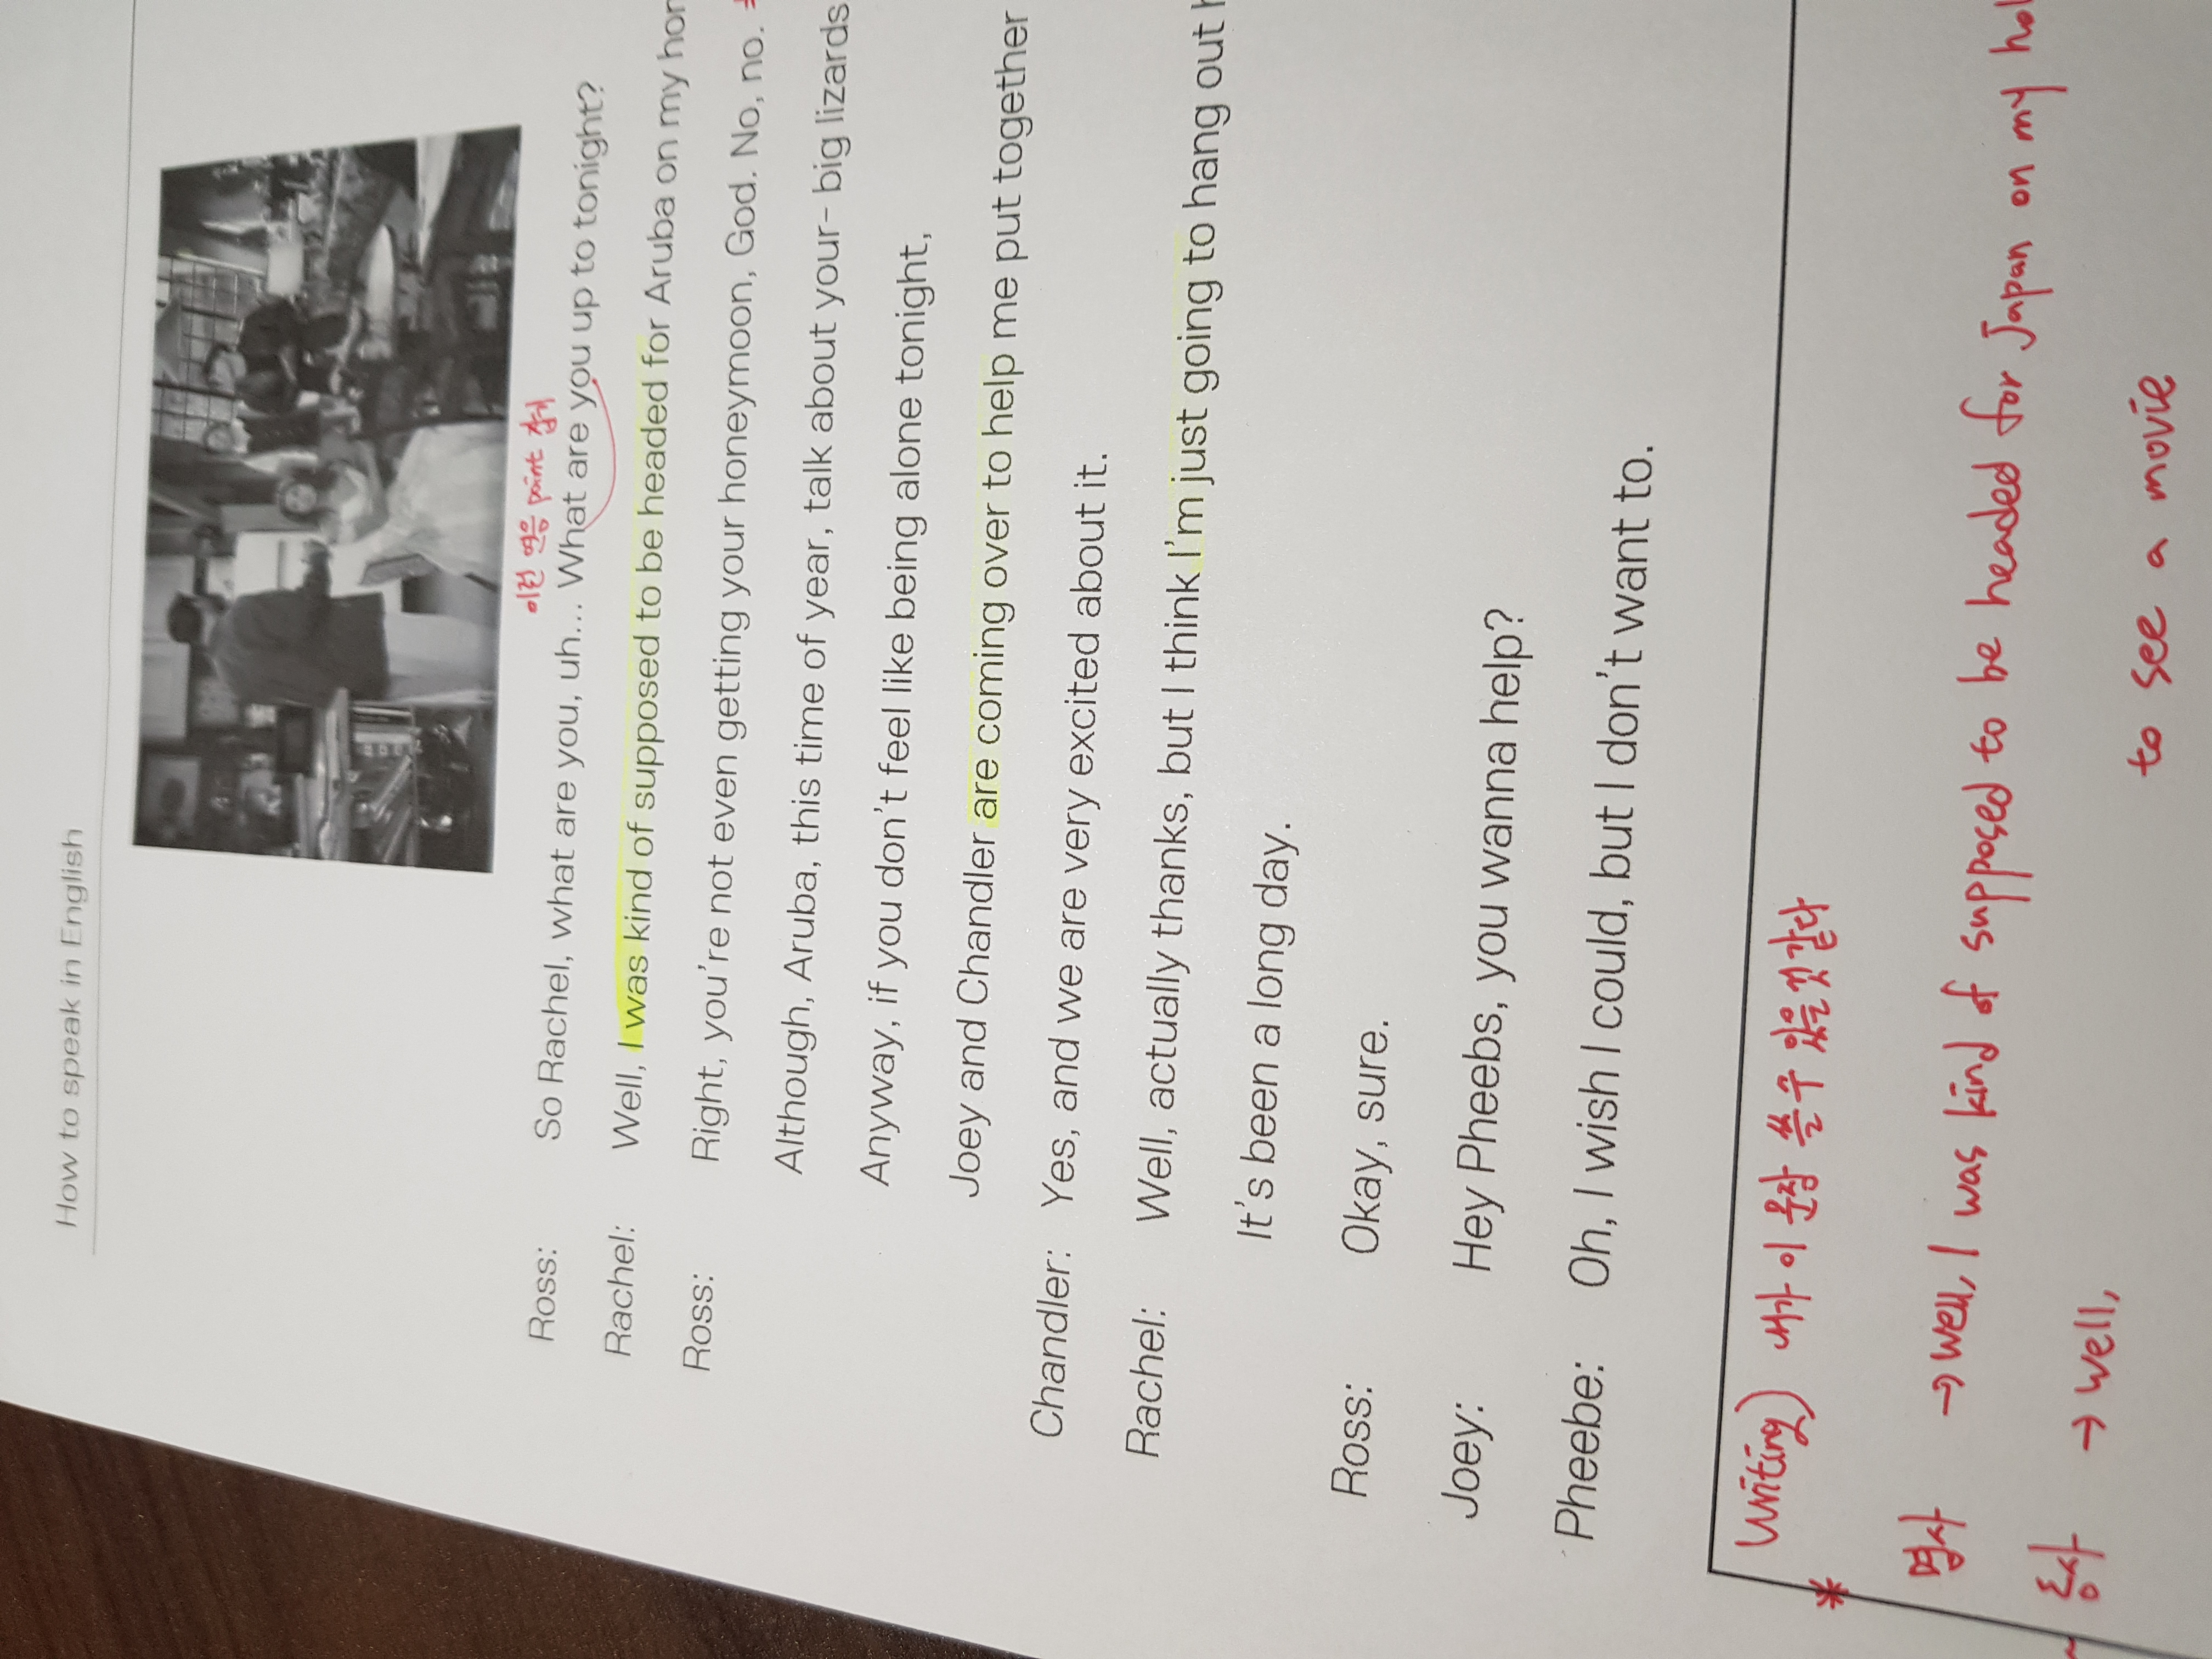 How to speak in English
이런 연음 point 잡기
Ross: So Rachel, what are you, uh... What are you up to tonight?
Rachel: Well, I was kind of supposed to be headed for Aruba on my
Ross: Right, you're not even getting your honeymoon, God. No, no.
Although, Aruba, this time of year, talk about your- big lizards
Anyway, if you don't feel like being alone tonight,
Joey and Chandler are coming over to help me put together
Chandler: Yes, and we are very excited about it.
Rachel: Well, actually thanks, but I think I'm just going to hang out
It's been a long day.
Ross: Okay, sure.
Joey: Hey Pheebs, you wanna help?
Pheebe: Oh, I wish I could, but I don't want to.
* Writing) 내가 이 문장 쓸 수 있을 것 같다
명사 → well, I was kind of supposed to be headed for Japan on my
동사 → well, to see a movie